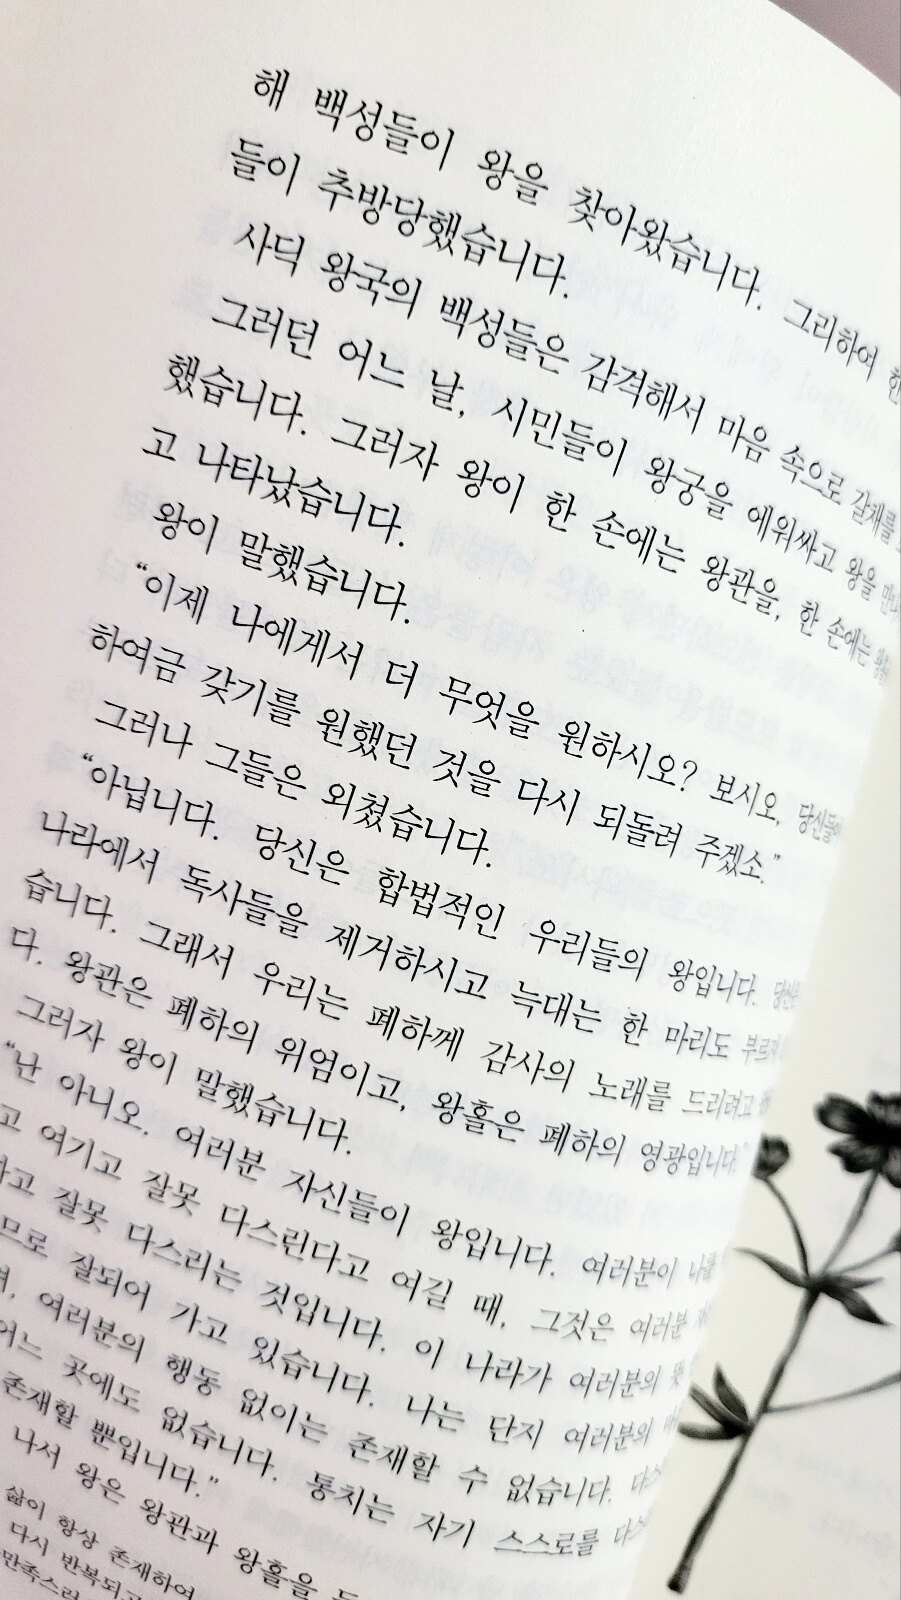 해 백성들이 왕을 찾아왔습니다. 그리하여 한
들이 추방당했습니다.
사딕 왕국의 백성들은 감격해서 마음 속으로 갈채를
그러던 어느 날, 시민들이 왕궁을 에워싸고 왕을
했습니다. 그러자 왕이 한 손에는 왕관을, 한 손에는
고 나타났습니다.
왕이 말했습니다.
“이제 나에게서 더 무엇을 원하시오? 보시오, 당신들이
하여금 갖기를 원했던 것을 다시 되돌려 주겠소.”
그러나 그들은 외쳤습니다.
“아닙니다. 당신은 합법적인 우리들의 왕입니다. 당신은
나라에서 독사들을 제거하시고 늑대는 한 마리도
습니다. 그래서 우리는 폐하께 감사의 노래를 드리려고
다. 왕관은 폐하의 위엄이고, 왕홀은 폐하의 영광입니다.”
그러자 왕이 말했습니다.
“난 아니오. 여러분 자신들이 왕입니다. 여러분이 나를
고 여기고 잘못 다스린다고 여길 때, 그것은 여러분
하고 잘못 다스리는 것입니다. 이 나라가 여러분의 뜻
므로 잘되어 가고 있습니다. 나는 단지 여러분의
여러분의 행동 없이는 존재할 수 없습니다.
어느 곳에도 없습니다. 통치는 자기 스스로를
존재할 뿐입니다.”
나서 왕은 왕관과 왕홀을
삶이 항상 존재하여
다시 반복되고
만족스러